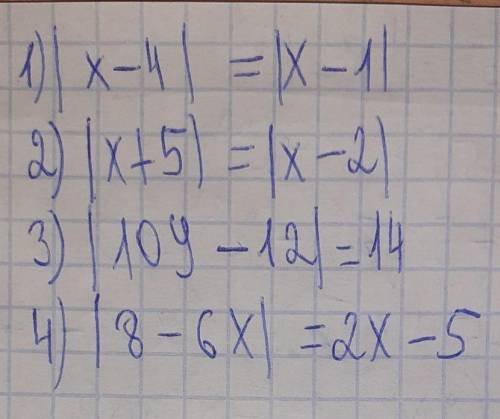 1) |x-4| = |x-1|
2) |x+5| = |x-2|
3) |10y-12| = 14
4) |8-6x| = 2x-5